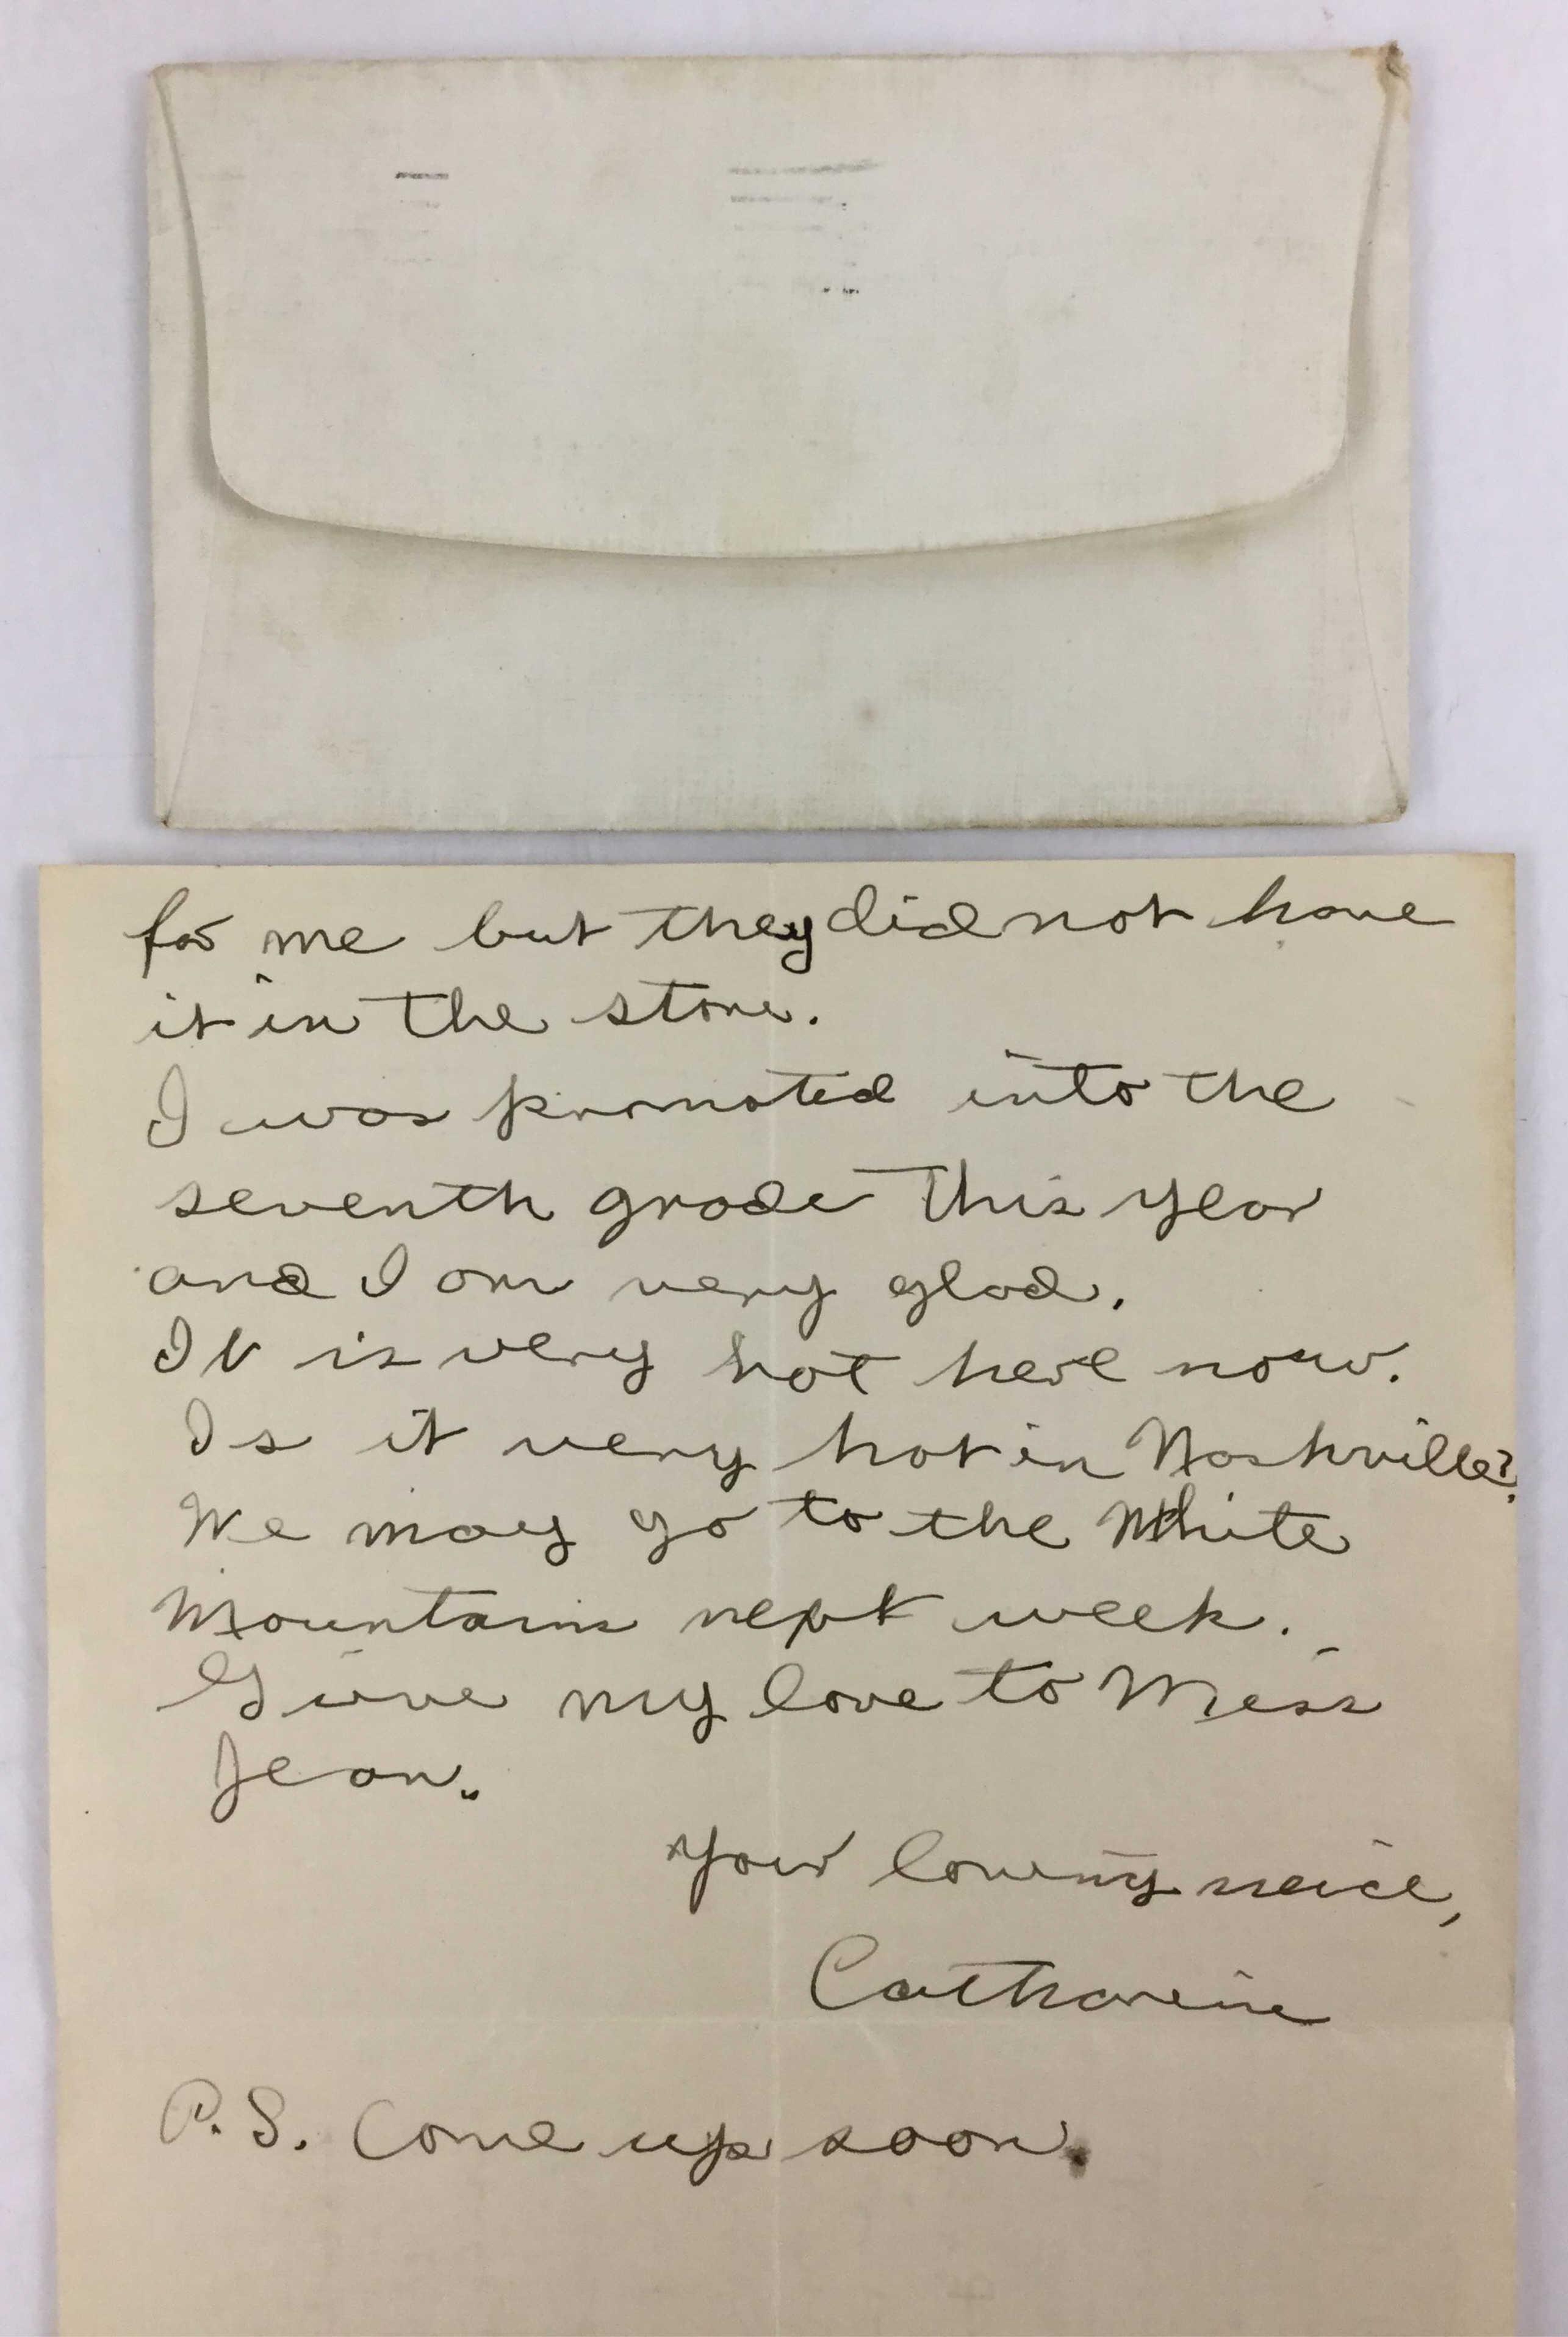 for me but they did not have
it in the store.
I was promoted into the
seventh grade this year
and I am very glad.
It is very hot here now.
Is it very hot in Nashville?
We may go to the White
Mountains next week.
Give my love to Miss
Jean.
Your loving neice,
Catharine
P.S. Come up soon.